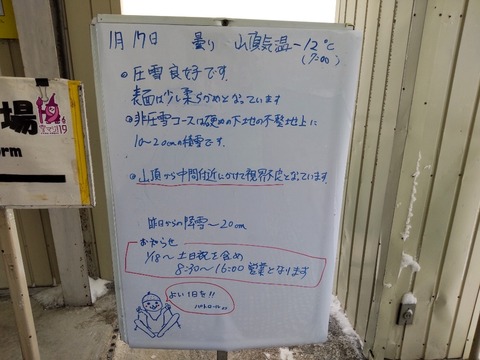 1月17日 曇り 山頂気温-12℃
(7:00)
◎圧雪良好です。
表面は少し柔らかめとなっています
◎非圧雪コースは硬めの下地の不整地上に
10~20cmの積雪です。
◎山頂から中間付近にかけて視界不良となっています。
昨日からの降雪~20cm
お知らせ
1/18~ 土日祝を含め
8:30~16:00 営業となります
よい1日を!!
パトロール
場
orm